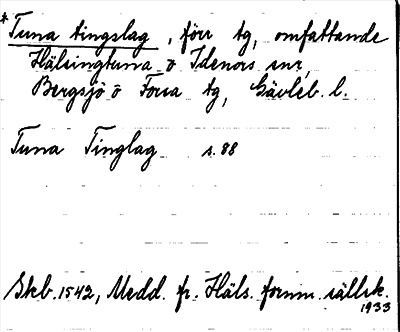 *Tuna tingslag, förr tg, omfattande
Hälsingtuna o Idenors snr,
Bergsjö o Forsa tg, Gävleb. l.
Tuna Tinglag s. 88
Skb. 1542, Medd. fr. Häls. fornm. sällsk.
1933